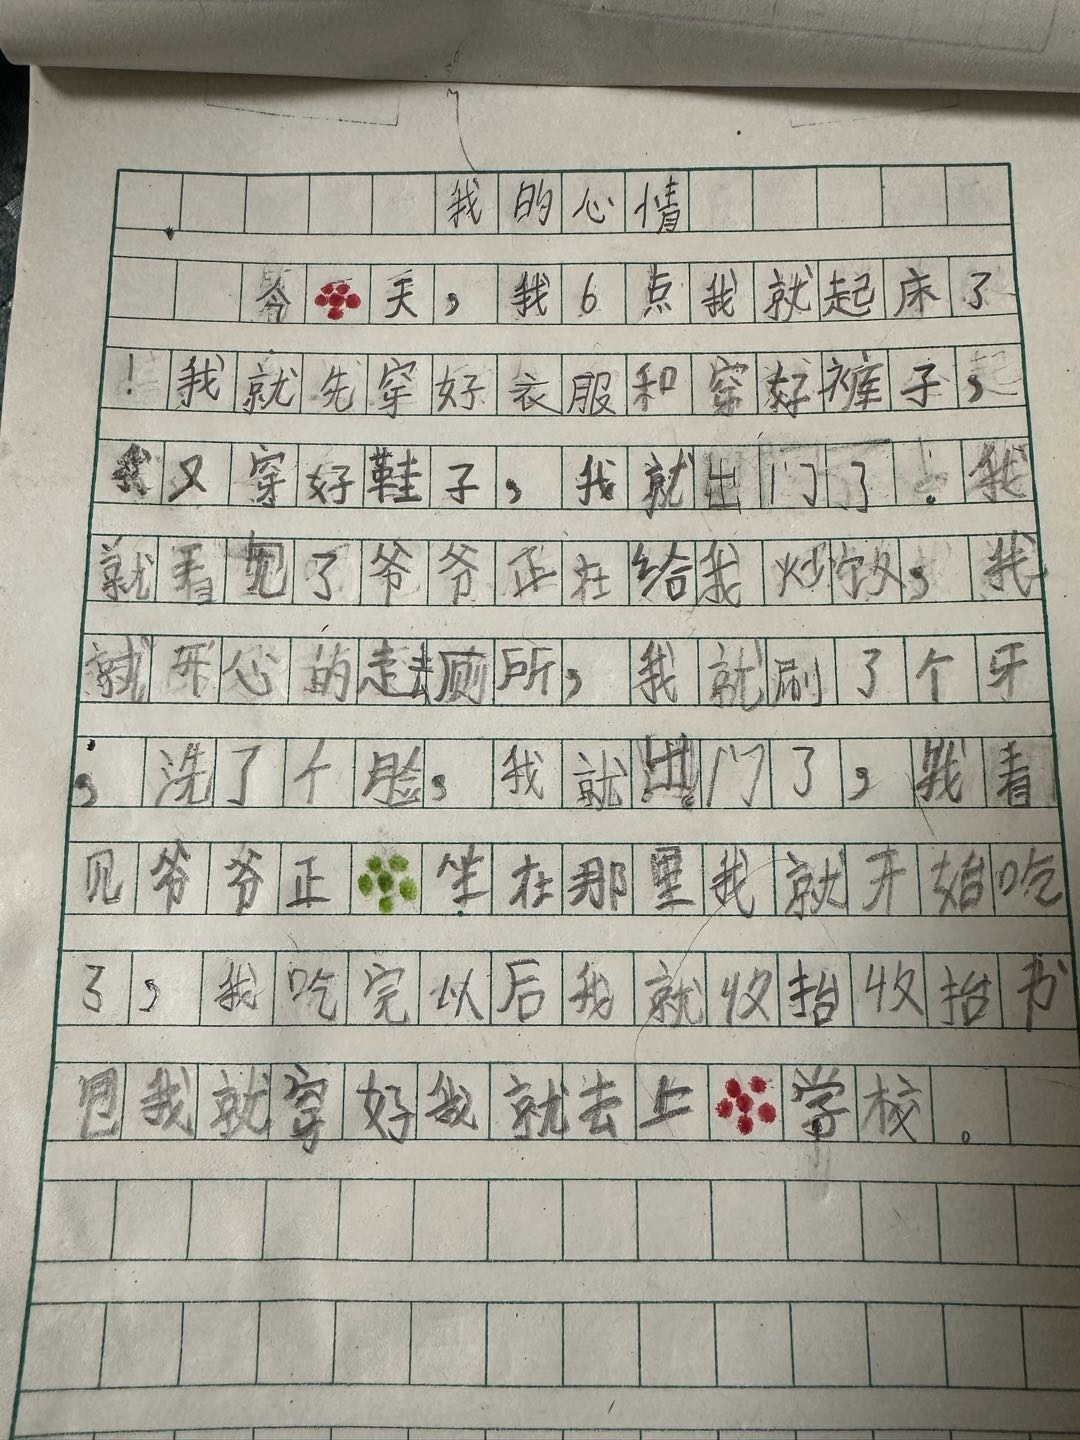 我的心情
今天，我6点我就起床了
！我就先穿好衣服和穿好裤子，
我又穿好鞋子，我就出门了。我
就看见了爷爷正在给我炒饭，我
就开心的走去厕所，我就刷了个牙
，洗了个脸，我就出门了，我看
见爷爷正坐在那里我就开始吃
了，我吃完以后我就收抬收抬书
包我就穿好我就去上学校。